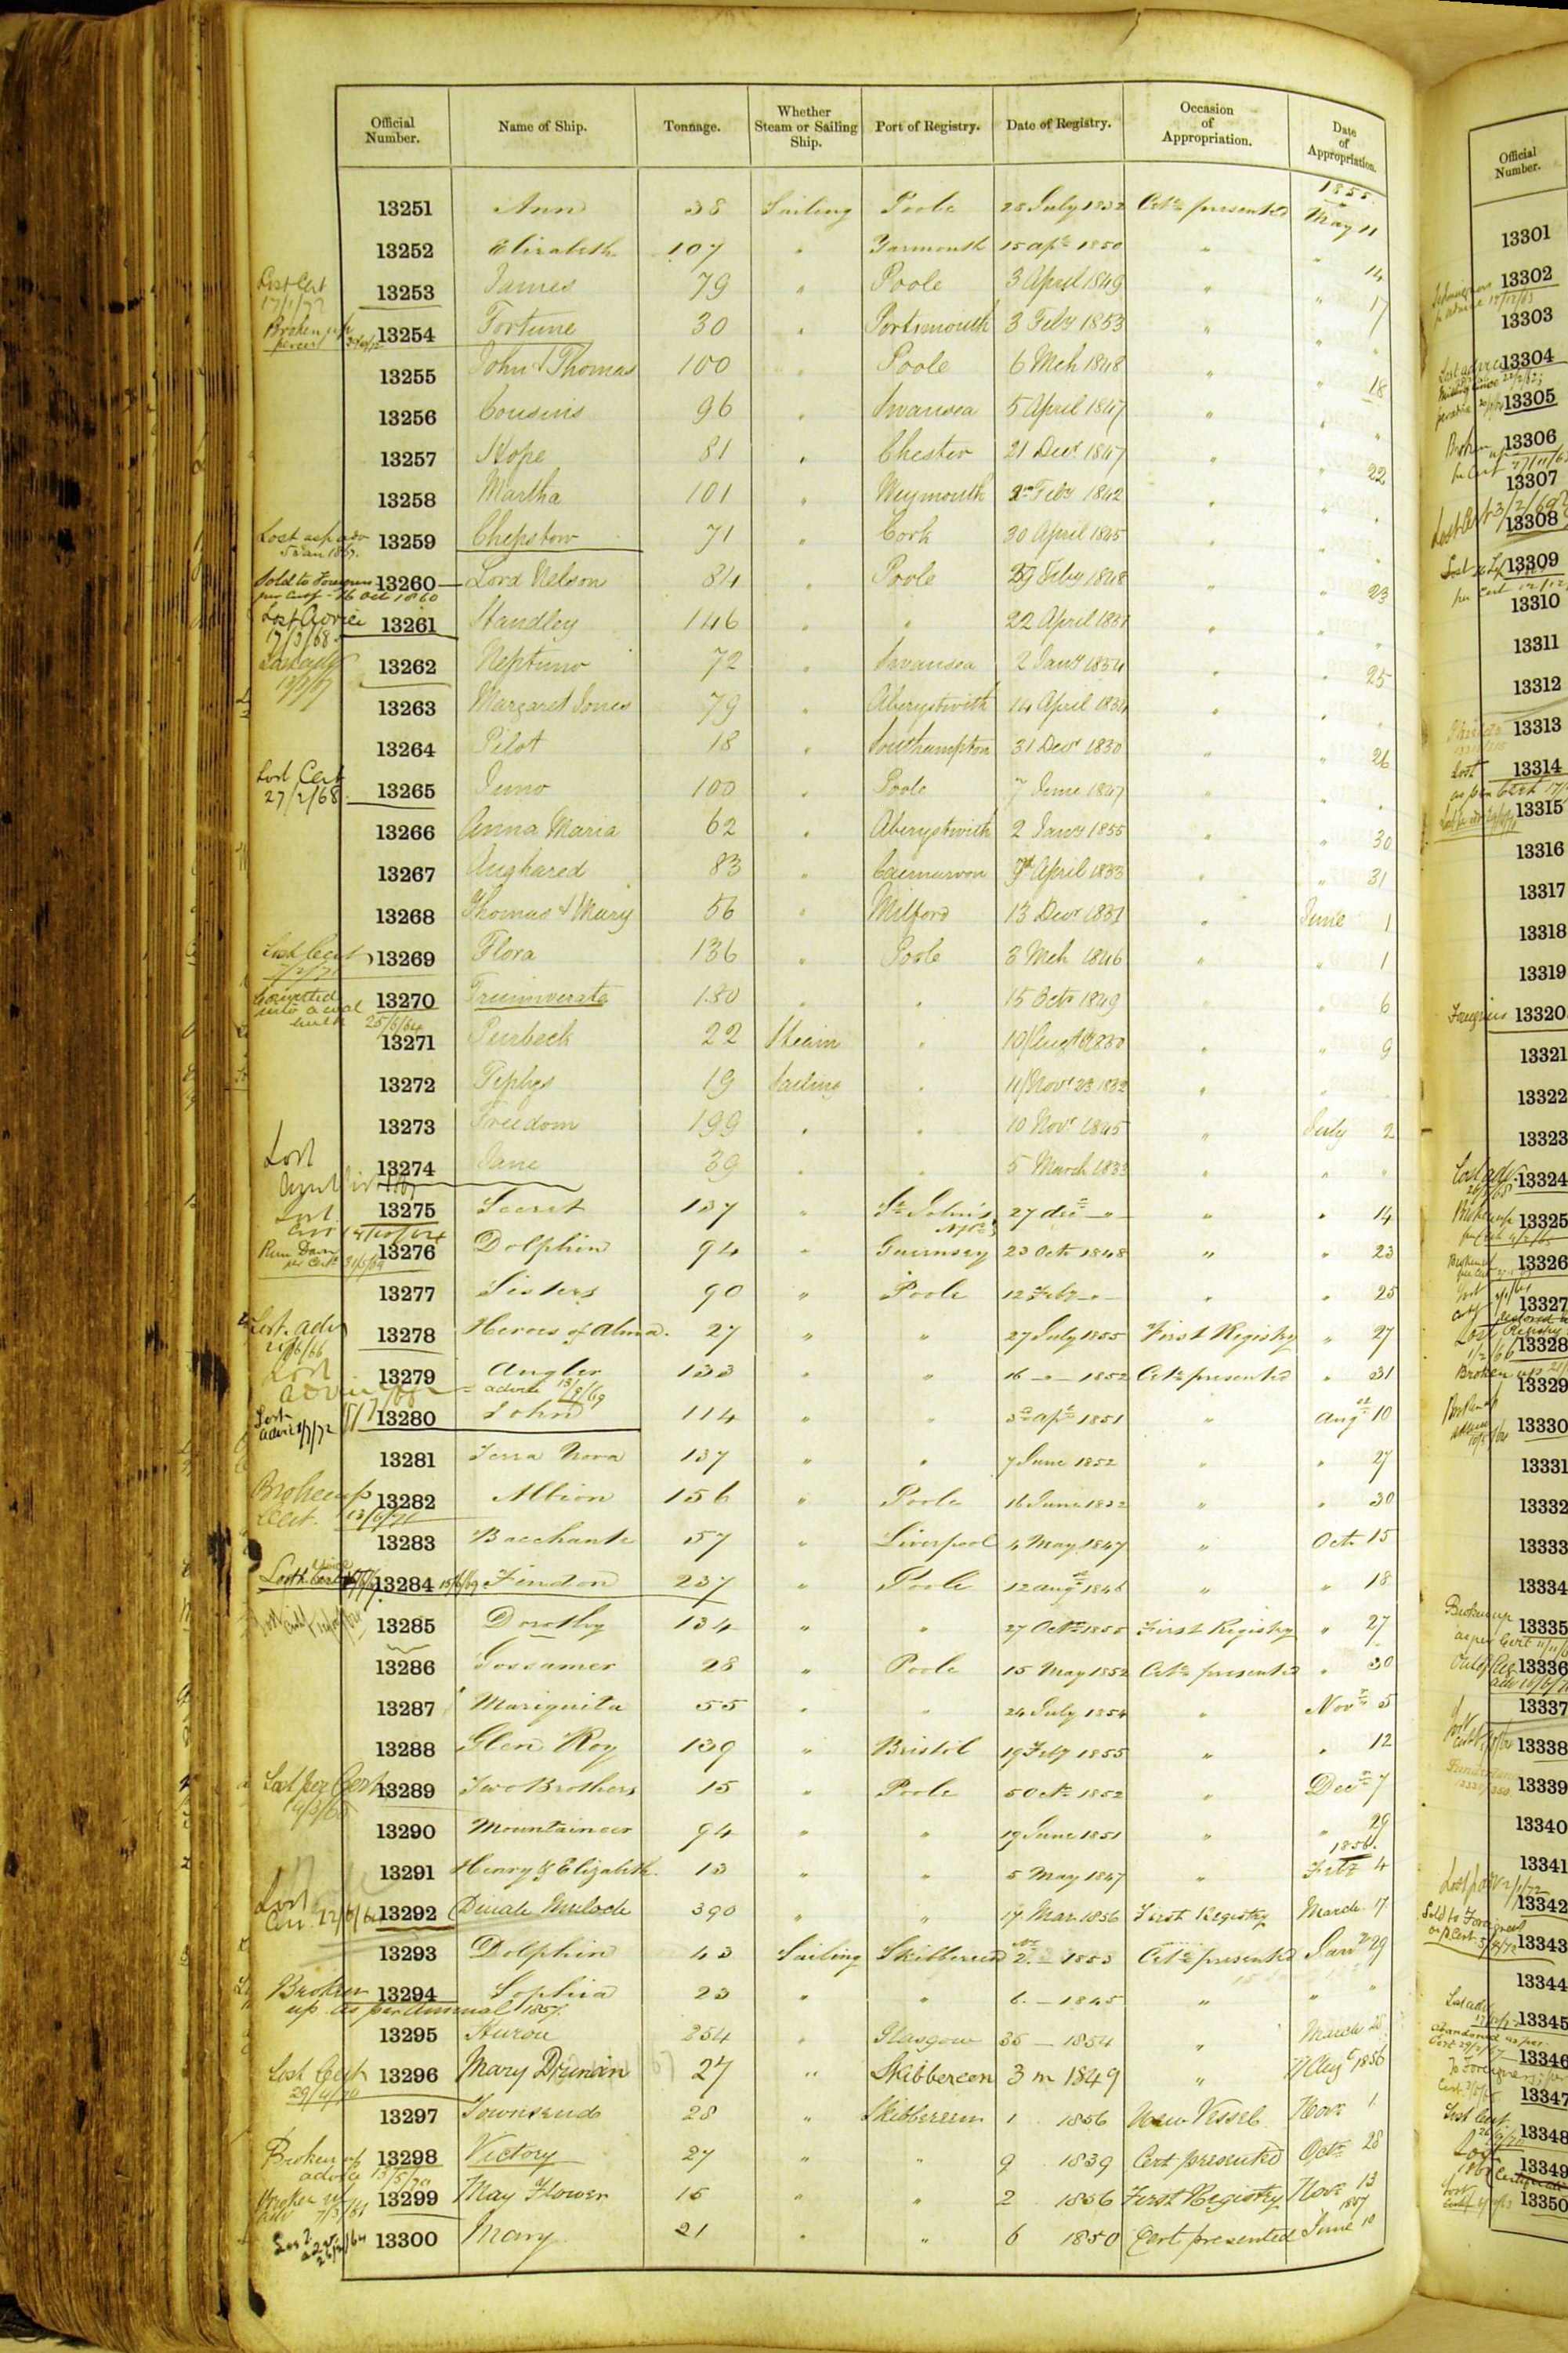 Official Number. Name of Ship. Tonnage. Whether Steam or Sailing Ship. Port of Registry. Date of Registry. Occasion of Appropriation. Date of Appropriation.
1855.
13251 Ann 38 Sailing Poole 28 July 1832 Certe presented May 11
13252 Elizabeth 107 " Yarmouth 15 apl 1850 " " 14
Lost Cert 17/1/77 13253 James 79 " Poole 3 April 1849 " " 17
Broken up 13254 Fortune 30 " Portsmouth 3 Feby 1853 " " "
13255 John & Thomas 100 " Poole 6 Mch 1848 " " 18
13256 Cousins 96 " Swansea 5 April 1847 " " "
13257 Hope 81 " Chester 21 Decr 1847 " " 22
13258 Martha 101 " Weymouth Feby 1842 " " "
Lost as p adv 5 Jan 1867. 13259 Chepstow 71 " Cork 30 April 1845 " " "
Sold to Foreigners per Certf 16 Oct 1860 13260 Lord Nelson 84 " Poole Feby 1848 " " 23
Lost Advice 17/3/68 13261 Standley 146 " " 22 April 1851 " " "
13262 Neptune 72 " Swansea 2 Jany 1854 " " 25
13263 Margaret Jones 79 " Aberystwith 14 April 1834 " " "
13264 Pilot 18 " Southampton 31 Decr 1830 " " 26
Lost Cert 27/2/68. 13265 Juno 100 " Poole 7 June 1847 " " "
13266 Anna Maria 62 " Aberystwith 2 Jany 1855 " " 30
13267 Angharad 83 " Caernarvon April 1853 " " 31
13268 Thomas & Mary 56 " Milford 13 Decr 1851 " June 1
Lost Cert 13269 Flora 136 " Poole 3 Mch 1846 " " 1
Converted into a coal hulk 25/6/64 13270 Triumverate 180 " " 15 Octr 1849 " " 6
13271 Purbeck 22 Steam " " " 9
13272 Tephys 19 Sailing " 11/Novr 23 1832 " " "
13273 Freedom 199 " " 10 Novr 1845 " July 2
Lost 13274 Jane 39 " " 5 March 1833 " " "
Lost 13275 Secret 137 " St John's 27 dec " " " 14
Run Down per Cert 13276 Dolphin 94 " Guernsey 23 Oct 1848 " " 23
13277 Sisters 90 " Poole 12 Feby " " " 25
Lost adv 13278 Heroes of Alma. 27 " " 27 July 1855 First Registry " 27
Lost 13279 Angler 133 " " 16 " 1852 Certe presented " 31
Lost advice 13280 John 114 " " 3 apl 1851 " Augst 10
13281 Terra Nova 137 " " 7 June 1852 " " 27
Broken up Cert. 13/6/71 13282 Albion 156 " Poole 16 June 1832 " " 30
13283 Bacchante 57 " Liverpool 4 May 1847 " Oct. 15
13284 15/6/69 Findon 237 " Poole 12 augst 1846 " " 18
13285 Dorothy 134 " " 27 Octr 1855 First Registry " 27
13286 Gossamer 28 " Poole 15 May 1852 Certe presented " 30
13287 Mariquita 55 " " 24 July 1854 " Novr 5
13288 Glen Roy 139 " Bristol 19 Feby 1855 " " 12
Lost per Cert 13289 Two Brothers 15 " Poole 5 Oct 1852 " Decr 7
13290 Mountaineer 94 " " 19 June 1851 " " 29
1856.
13291 Henry & Elizabeth. 13 " " 5 May 1847 " Feby 4
Lost 13292 Dinah Muloch 390 " " 17 Mar 1856 First Registry March 17
13293 Dolphin 43 Sailing Skibbereen 2 1853 Certe presented Jany 29
Broken up as per Annual 1857. 13294 Sophia 23 " " 6 - 1845 " " "
13295 Huron 254 " Glasgow 35 - 1854 " March 28
Lost Cert 29/4/70 13296 Mary Drinan 27 " Skibbereen 3 m 1849 " Augt 1856
13297 Townsend 28 " Skibbereen 1 1856 New Vessel Novr 1
Broken up advice 13/5/70 13298 Victory 27 " " 9 1839 Cert presented Octr 28
Broken up adv 7/3/61 13299 May Flower 15 " " 2 1856 First Registry Novr 13
1857
13300 Mary 21 " " 6 1850 Cert presented June 10
Official Number.
13301
13302
13303
13304
13305
13306
13307
13308
13309
13310
13311
13312
13313
Lost 13314
13315
13316
13317
13318
13319
Foreigners 13320
13321
13322
13323
13324
13325
13326
13327
13328
13329
13330
13331
13332
13333
13334
Broken up 13335
13336
13337
13338
13339
13340
13341
13342
Sold to Foreigners 13343
13344
13345
13346
13347
13348
13349
13350